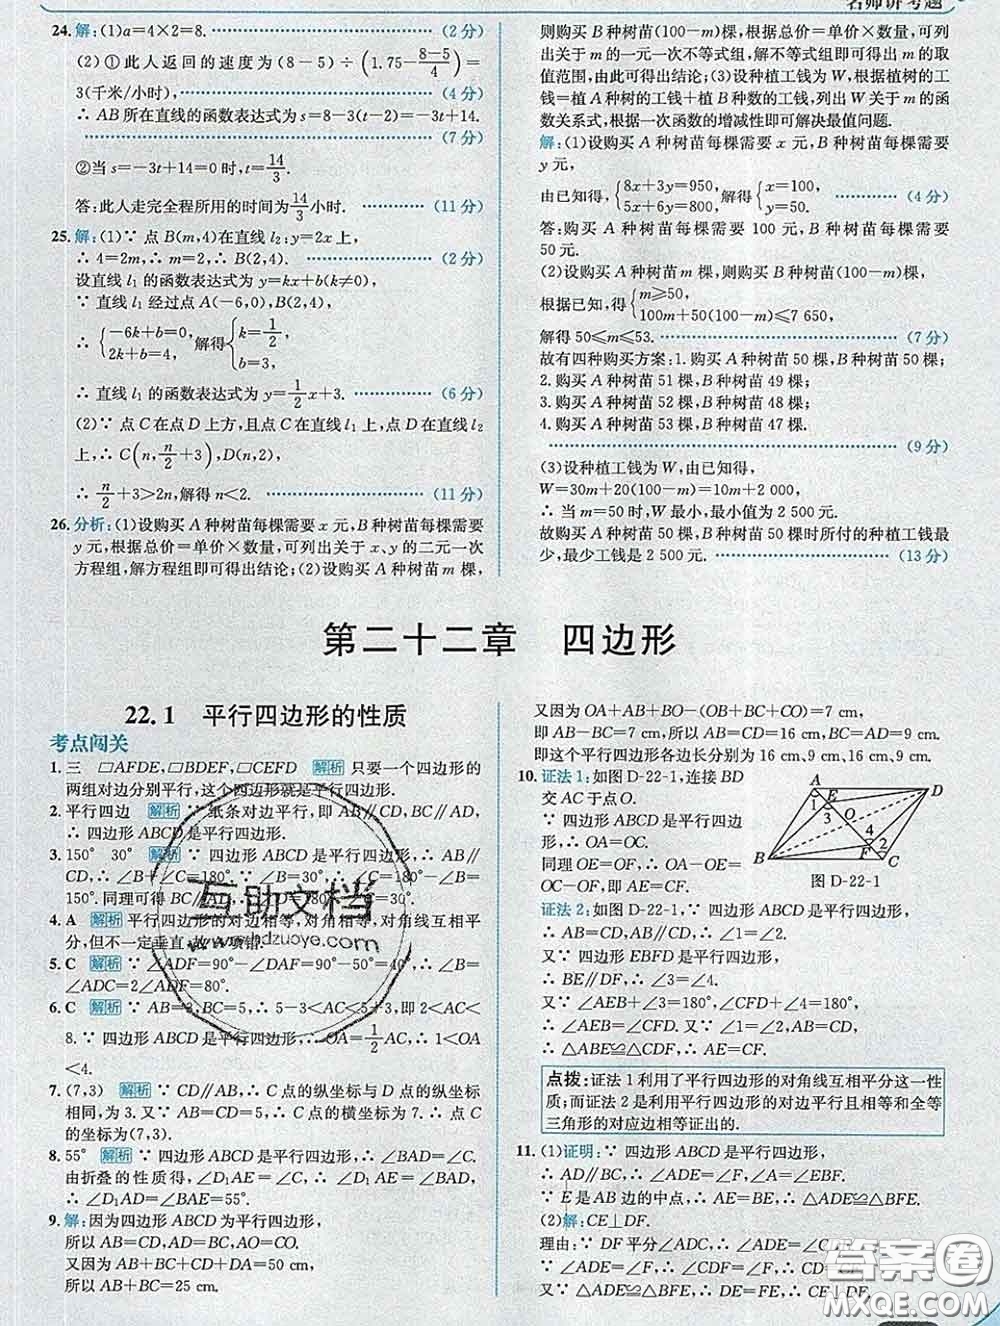 名师讲考题
24. 解:(1)a=4×2=8. (2分)
(2)①此人返回的速度为(8-5)÷(1.75-(8-5)/4)=
3(千米/小时), (4分)
∴ AB所在直线的函数表达式为s=8-3(t-2)=-3t+14.
(7分)
②当s=-3t+14=0时,t=14/3.
答:此人走完全程所用的时间为14/3小时. (11分)
25. 解:(1)∵ 点B(m,4)在直线l₂:y=2x上,
∴ 4=2m,∴ m=2,∴ B(2,4). (2分)
设直线l₁的函数表达式为y=kx+b(k≠0).
∵ 直线l₁经过点A(-6,0),B(2,4),
∴ {-6k+b=0, 2k+b=4, 解得{k=1/2, b=3.
∴ 直线l₁的函数表达式为y=1/2x+3. (6分)
(2)∵ 点C在点D上方,且点C在直线l₁上,点D在直线l₂
上,∴ C(n,n/2+3),D(n,2n),
∴ n/2+3>2n,解得n<2. (11分)
26. 分析:(1)设购买A种树苗每棵需要x元,B种树苗每棵需要
y元,根据总价=单价×数量,可列出关于x,y的二元一次
方程组,解方程组即可得出结论;(2)设购买A种树苗m棵,
则购买B种树苗(100-m)棵,根据总价=单价×数量,可列
出关于m的一元一次不等式组,解不等式组即可得出m的
取值范围,由此可得出结论;(3)设种植工钱为W,根据植树的工
钱=植A种树的工钱+植B种数的工钱,列出W关于m的
函数关系式,根据一次函数的增减性即可解决最值问题.
解:(1)设购买A种树苗每棵需要x元,B种树苗每棵需要
y元,
由已知得,{8x+3y=950, 5x+6y=800, 解得{x=100, y=50. (4分)
答:购买A种树苗每棵需要100元,B种树苗每棵需要
50元.
(2)设购买A种树苗m棵,则购买B种树苗(100-m)棵,
根据已知,得{m≥50, 100m+50(100-m)≤7 650,
解得50≤m≤53. (7分)
故有四种购买方案:1.购买A种树苗50棵,B种树苗50棵;
2.购买A种树苗51棵,B种树苗49棵;
3.购买A种树苗52棵,B种树苗48棵;
4.购买A种树苗53棵,B种树苗47棵.
(9分)
(3)设种植工钱为W,由已知得,
W=30m+20(100-m)=10m+2 000,
∴ 当m=50时,W最小,最小值为2 500元.
故购买A种树苗50棵、B种树苗50棵时所付的种植工钱最
少,最少工钱是2 500元. (13分)
第二十二章 四边形
22.1 平行四边形的性质
考点闯关
1. 三 □AFDE,□BDEF,□CEFD 解析 只要一个四边形的
两组对边分别平行,这个四边形就是平行四边形.
2. 平行四边 解析 ∵ 纸条对边平行,即AB∥CD,BC∥AD,
∴ 四边形ABCD是平行四边形.
3. 150° 30° 解析 ∵ 四边形ABCD是平行四边形,∴ AB∥
CD,∴ ∠B+∠C=180°.∵ ∠B=30°,∴ ∠C=180°-30°=
150°.同理可得BC∥AD,∴ ∠D=180°-150°=30°.
4. A 解析 平行四边形的对边相等,对角相等,对角线互相平
分,但不一定垂直,故A项错.
5. C 解析 ∵ ∠ADF=90°-∠DAF=90°-50°=40°,∴ ∠B=
∠ADC=2∠ADF=80°.
6. C 解析 ∵ AB=3,BC=5,∴ 5-3<AC<5+3,即2<AC<
8.∵ 四边形ABCD是平行四边形,∴ OA=1/2AC,∴ 1<OA
<4.
7. (7,3) 解析 ∵ CD∥AB,∴ C点的纵坐标与D点的纵坐标
相同,为3.又∵ CD=AB=5,∴ C点的横坐标为7.∴ 点C
的坐标为(7,3).
8. 55° 解析 ∵ 四边形ABCD是平行四边形,∴ ∠BAD=∠C.
由折叠的性质得,∠D₁AE=∠C,∴ ∠D₁AE=∠BAD,
∴ ∠D₁AD=∠BAE=55°.
9. 解:因为四边形ABCD为平行四边形,
所以AB=CD,AD=BC,AO=CO.
又因为AB+BC+CD+DA=50 cm,
所以AB+BC=25 cm.
又因为OA+AB+BO-(OA+BC+OB)=7 cm,
即AB-BC=7 cm,所以AB=CD=16 cm,BC=AD=9 cm.
即这个平行四边形各边长分别为16 cm、9 cm、16 cm、9 cm.
10. 证法1:如图D-22-1,连接BD
交AC于点O.
∵ 四边形ABCD是平行四边形,
∴ OA=OC.
同理OE=OF,∴ OA-OE=
OC-OF,即AE=CF.
A E D 1 3 O 4 2 B F C
图D-22-1
证法2:如图D-22-1,∵ 四边形ABCD是平行四边形,
∴ AB=CD,AB∥CD,∴ ∠1=∠2.
又∵ 四边形EBFD是平行四边形,
∴ BE∥DF,∴ ∠3=∠4.
又∵ ∠AEB+∠3=180°,∠CFD+∠4=180°,
∴ ∠AEB=∠CFD.又∵ ∠1=∠2,AB=CD,
∴ △ABE≌△CDF,∴ AE=CF.
点拨:证法1利用了平行四边形的对角线互相平分这一性
质;而证法2是利用平行四边形的对边平行且相等和全等
三角形的对应边相等证出的.
11. (1)证明:∵ 四边形ABCD是平行四边形,
∴ AD∥BC,∴ ∠ADE=∠F,∠A=∠EBF.
∵ E是AB的中点,∴ AE=BE,∴ △ADE≌△BFE.
(2)解:CE⊥DF.
理由:∵ DF平分∠ADC,∴ ∠ADE=∠CDE.
∵ ∠ADE=∠F,∴ ∠CDE=∠F,∴ CD=CF.
∵ △ADE≌△BFE,∴ DE=FE,∴ CE⊥DF.
互助文档
www.hdzuoye.com
答案圈
MXQE.COM